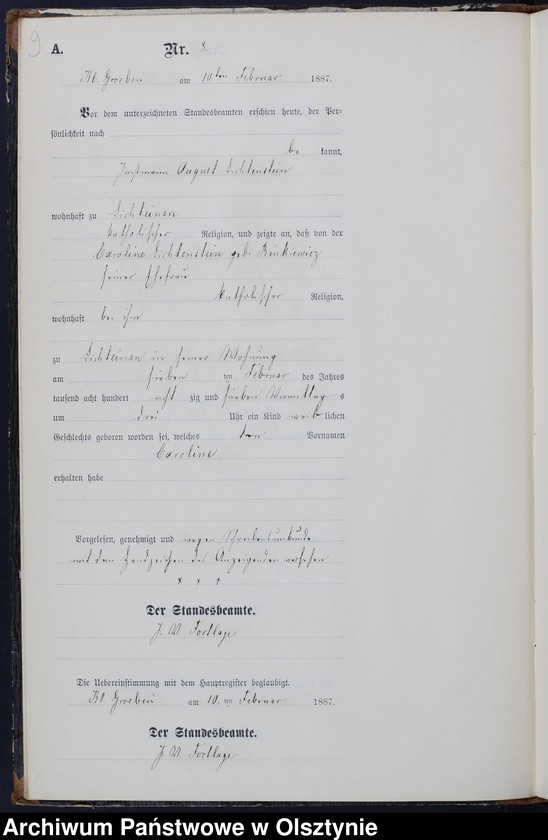 9
A. Nr. 8.
Kl. Groeben am 10ten Februar 1887.
Vor dem unterzeichneten Standesbeamten erschien heute, der Per=
sönlichkeit nach
be kannt,
August Lichtenstein
wohnhaft zu Lichteinen
katholischer Religion, und zeigte an, daß von der
Caroline Lichtenstein geb. Rinkiewicz
seiner Ehefrau
katholischer Religion,
wohnhaft bei ihm
zu Lichteinen in seiner Wohnung
am sieben ten Februar des Jahres
tausend acht hundert acht zig und sieben Vormittag s
um drei Uhr ein Kind weib lichen
Geschlechts geboren worden sei, welches den Vornamen
Caroline
erhalten habe
Vorgelesen, genehmigt und wegen Schreibensunkunde
mit dem Handzeichen des Anzeigenden versehen
x x x
Der Standesbeamte.
J. V. Fortlage
Die Uebereinstimmung mit dem Hauptregister beglaubigt.
Kl. Groeben am 10. ten Februar 1887.
Der Standesbeamte.
J. V. Fortlage
Archiwum Państwowe w Olsztynie